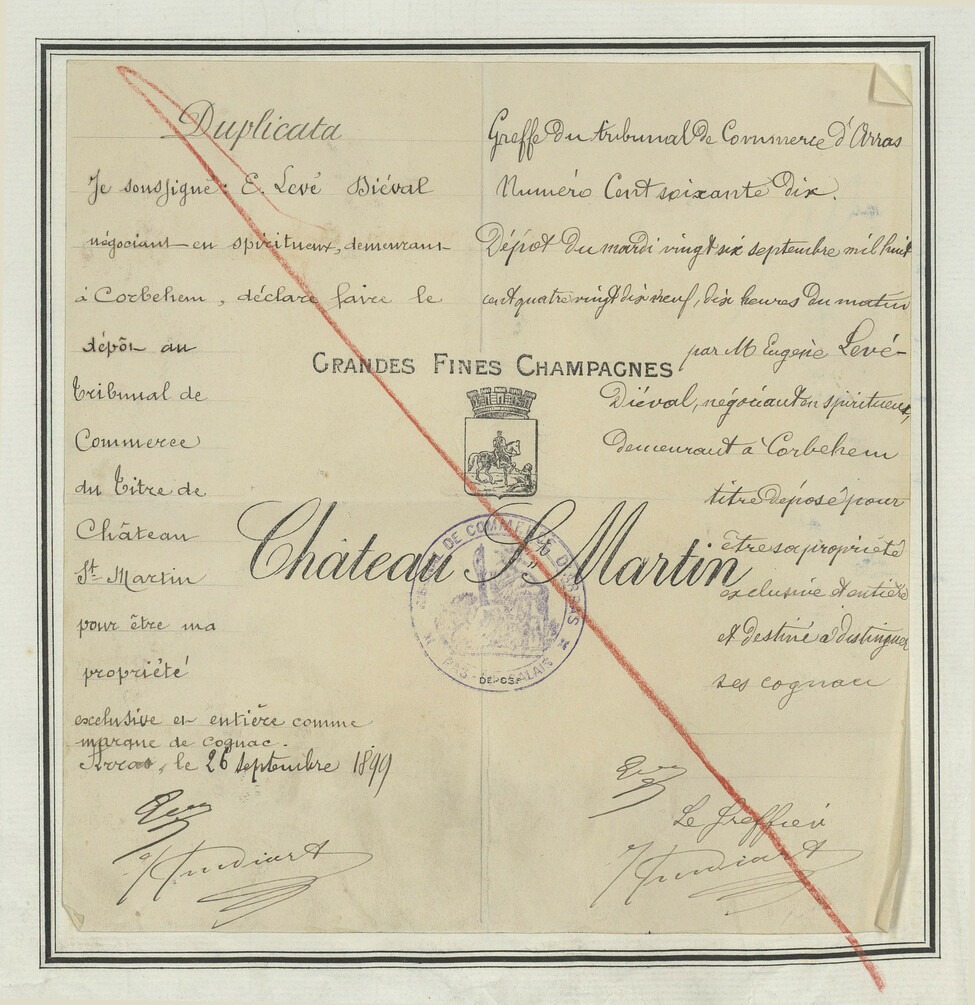 Duplicata
Je soussigné : E. Levé Diéval
négociant en spiritueux, demeurant
à Corbehem, déclare faire le
dépôt au
Tribunal de
Commerce
du Titre de
Château
St Martin
pour être ma
propriété
exclusive et entière comme
marque de cognac.
Arras, le 26 septembre 1899
GRANDES FINES CHAMPAGNES
Château St Martin
TRIBUNAL DE COMMERCE D'ARRAS
PAS-DE-CALAIS
DÉPOSÉ
Greffe du tribunal de Commerce d'Arras
Numéro Cent soixante dix.
Dépôt du mardi vingt six septembre mil huit
cent quatre vingt dix neuf, dix heures du matin
par M Eugène Levé-
Diéval, négociant en spiritueux,
demeurant à Corbehem
titre déposé pour
être sa propriété
exclusive et entière
et destiné à distinguer
ses cognac
Le Greffier